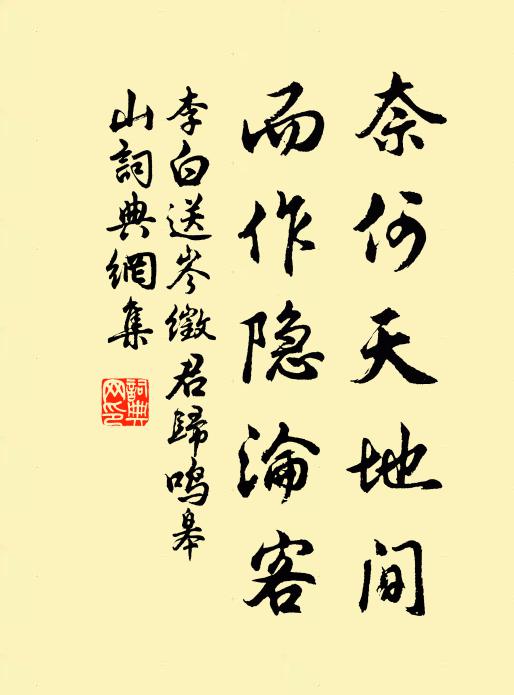 奈何天地间
而作隐淪客
李白送岑徵君歸鸣皋
山詞典網集
詞典网印